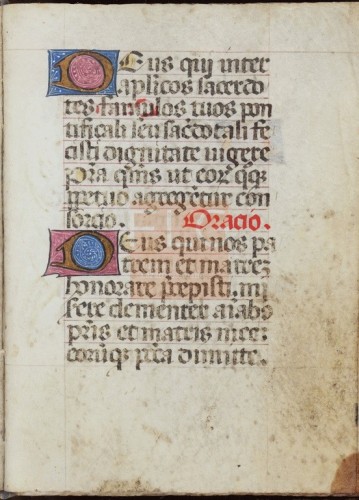 Deus qui inter
ap̄licos sacerdo
tes famulos tuos pon
tificali seu sac̄dotali fe
cisti dignitate vigere
p̄ta qm̄s ut eor̄ q̄q̧
ꝑpetuo agregētur con
sorcio. Oracio.
Deus qui nos pa
trem et matrē
honorare p̄cepisti. mi
sere clementer aīabꝫ
pr̄is et matris mee
eorūq̧ pc̄ca dimitte.